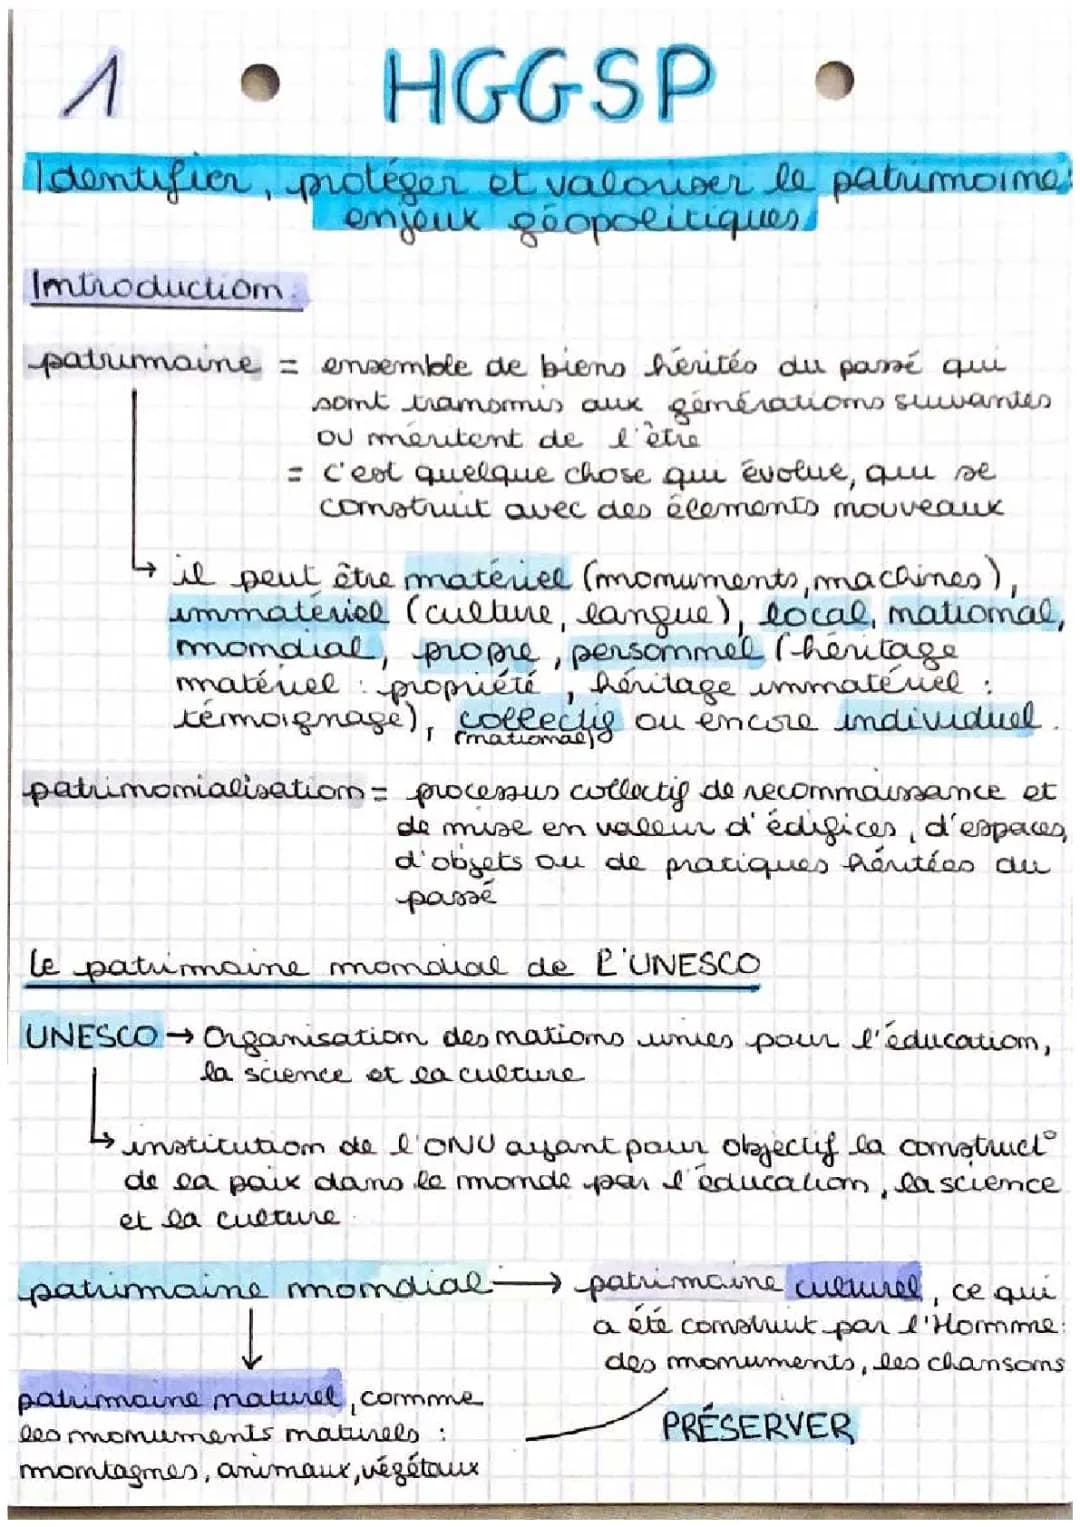 1 • HGGSP •
Identifier, protéger et valoriser le patrimoine:
enjeux géopolitiques
Introduction:
patrimoine = ensemble de biens hérités du passé qui
sont transmis aux générations suivantes
ou méritent de l'être
= c'est quelque chose qui évolue, qui se
construit avec des élements nouveaux
↳ il peut être matériel (monuments, machines),
immatériel (culture, langue), local, national,
mondial, propre, personnel (héritage
matériel : propriété, héritage immatériel :
témoignage), collectif ou encore individuel.
(national)
patrimonialisation = processus collectif de reconnaissance et
de mise en valeur d'édifices, d'espaces,
d'objets ou de pratiques héritées du
passé
Le patrimoine mondial de l'UNESCO
UNESCO → Organisation des nations unies pour l'éducation,
la science et la culture
↳ institution de l'ONU ayant pour objectif la construct°
de la paix dans le monde par l'éducation, la science
et la culture.
patrimoine mondial → patrimoine culturel, ce qui
a été construit par l'Homme:
des monuments, les chansons
patrimoine naturel, comme
les monuments naturels :
montagnes, animaux, végétaux
PRÉSERVER